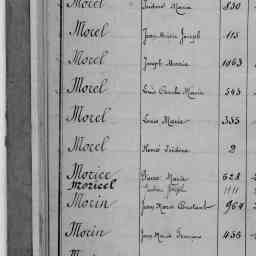 Morel Isidore Marie 830
Morel Jean Marie Joseph 115
Morel Joseph Marie 1063
Morel Louis Charles Marie 543
Morel Louis Marie 355
Morel René Isidore 2
Morice Pierre Marie 628
Moricel Joseph 1111
Morin Jean Marie Constant 964
Morin Jean Marie François 456